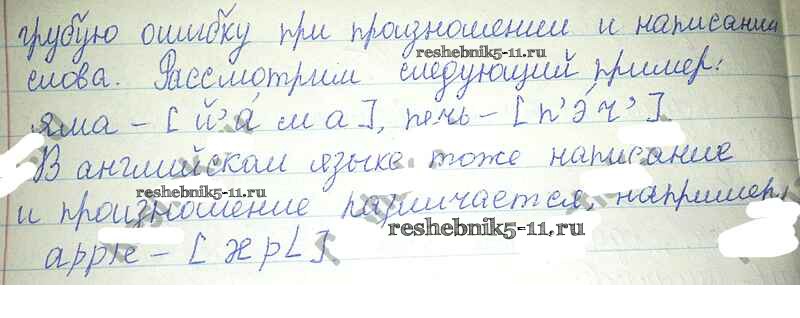 грубую ошибку при произношении и написании
reshebnik5-11.ru
слова. Рассмотрим следующий пример:
яма - [й'áма], печь - [п'э́ч']
В английском языке тоже написание
reshebnik5-11.ru
и произношение различается, например,
reshebnik5-11.ru
apple - [æpL]